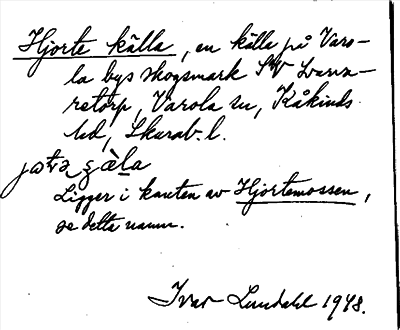 Hjorte källa, en källa på Varo-
la bys skogsmark SV Svarva-
retorp, Varola sn, Kåkinds
hd, Skarab. l.
Ligger i kanten av Hjortemossen,
se detta namn.
Ivar Lundahl 1948.